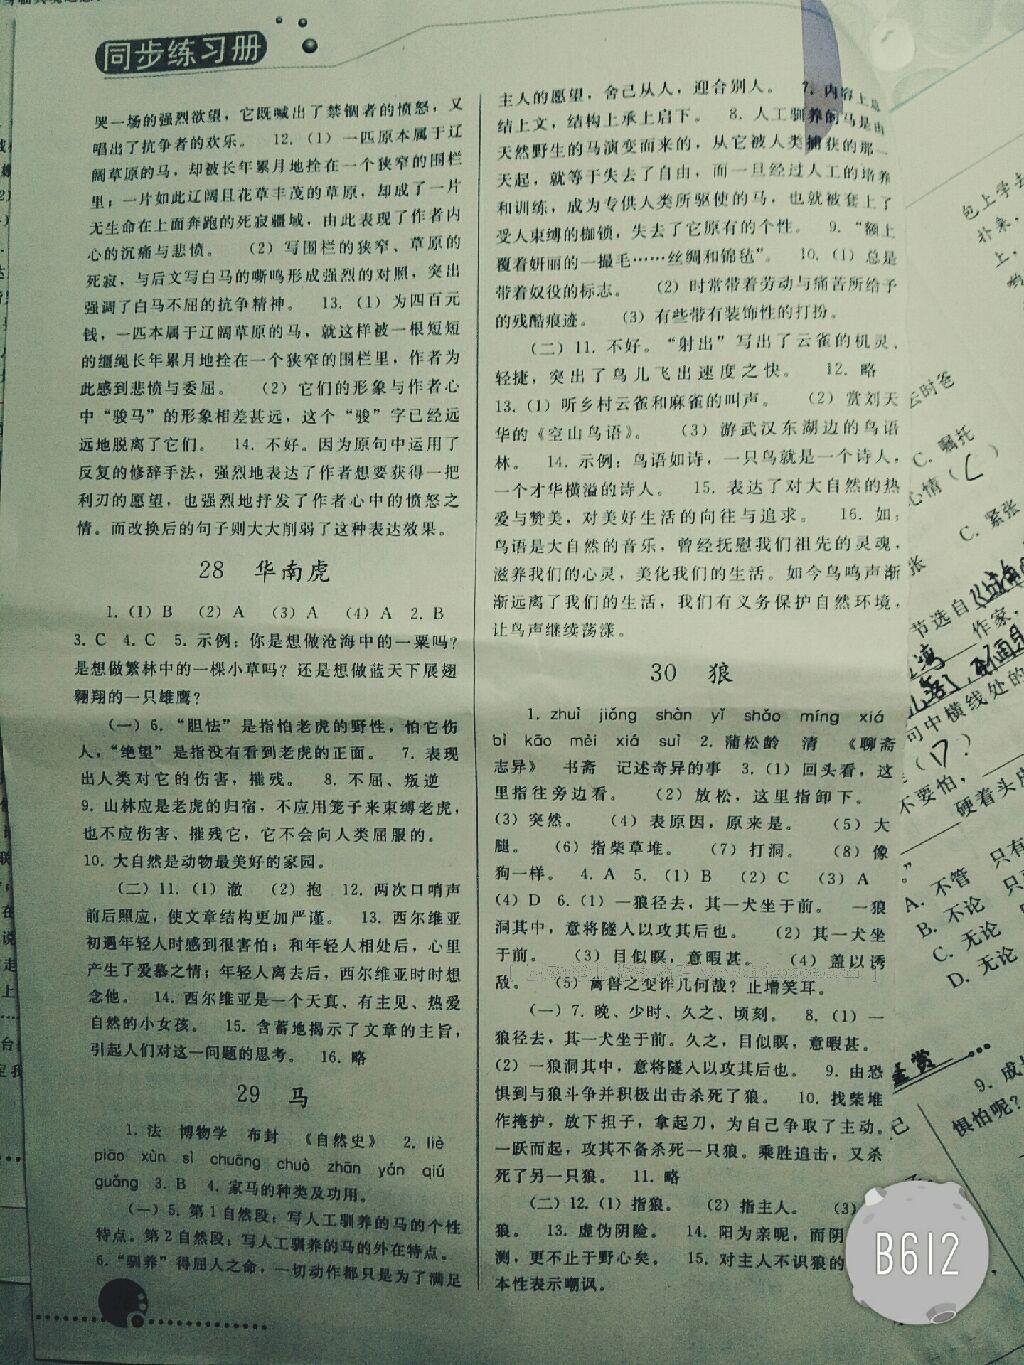 同步练习册
哭一场的强烈欲望，它既喊出了禁锢者的愤怒，又
唱出了抗争者的欢乐。 12.（1）一匹原本属于辽
阔草原的马，却被长年累月地拴在一个狭窄的围栏
里；一片如此辽阔且花草丰茂的草原，却成了一片
无生命在上面奔跑的死寂疆域，由此表现了作者内
心的沉痛与悲愤。 （2）写围栏的狭窄、草原的
死寂，与后文写白马的嘶鸣形成强烈的对照，突出
强调了白马不屈的抗争精神。 13.（1）为四百元
钱，一匹本属于辽阔草原的马，就这样被一根短短
的缰绳长年累月地拴在一个狭窄的围栏里，作者为
此感到悲愤与委屈。 （2）它们的形象与作者心
中“骏马”的形象相差甚远，这个“骏”字已经远
远地脱离了它们。 14. 不好。因为原句中运用了
反复的修辞手法，强烈地表达了作者想要获得一把
利刃的愿望，也强烈地抒发了作者心中的愤怒之
情。而改换后的句子则大大削弱了这种表达效果。
28 华南虎
1.（1）B （2）A （3）A （4）A 2. B
3. C 4. C 5. 示例：你是想做沧海中的一粟吗？
是想做繁林中的一棵小草吗？还是想做蓝天下展翅
翱翔的一只雄鹰？
（一）6. “胆怯”是指怕老虎的野性，怕它伤
人，“绝望”是指没有看到老虎的正面。 7. 表现
出人类对它的伤害，摧残。 8. 不屈、叛逆
9. 山林应是老虎的归宿，不应用笼子来束缚老虎，
也不应伤害、摧残它，它不会向人类屈服的。
10. 大自然是动物最美好的家园。
（二）11.（1）澈 （2）抱 12. 两次口哨声
前后照应，使文章结构更加严谨。 13. 西尔维亚
初遇年轻人时感到很害怕；和年轻人相处后，心里
产生了爱慕之情；年轻人离去后，西尔维亚时时想
念他。 14. 西尔维亚是一个天真、有主见、热爱
自然的小女孩。 15. 含蓄地揭示了文章的主旨，
引起人们对这一问题的思考。 16. 略
29 马
1. 法 博物学 布封 《自然史》 2. liè
piāo xùn sì chuāng chuò zhān yán qiú
guǎng 3. B 4. 家马的种类及功用。
（一）5. 第1自然段：写人工驯养的马的个性
特点。第2自然段：写人工驯养的马的外在特点。
6. “驯养”得屈人之命，一切动作都只是为了满足
主人的愿望，舍己从人，迎合别人。 7. 内容上总
结上文，结构上承上启下。 8. 人工驯养的马是由
天然野生的马演变而来的，从它被人类捕获的那一
天起，就等于失去了自由，而一旦经过人工的培养
和训练，成为专供人类所驱使的马，也就被套上了
受人束缚的枷锁，失去了它原有的个性。 9. “额上
覆着妍丽的一撮毛……丝绸和锦毡”。 10.（1）总是
带着奴役的标志。 （2）时常带着劳动与痛苦所给予
的残酷痕迹。 （3）有些带有装饰性的打扮。
（二）11. 不好。“射出”写出了云雀的机灵、
轻捷，突出了鸟儿飞出速度之快。 12. 略
13.（1）听乡村云雀和麻雀的叫声。 （2）赏刘天
华的《空山鸟语》。 （3）游武汉东湖边的鸟语
林。 14. 示例：鸟语如诗，一只鸟就是一个诗人，
一个才华横溢的诗人。 15. 表达了对大自然的热
爱与赞美，对美好生活的向往与追求。 16. 如，
鸟语是大自然的音乐，曾经抚慰我们祖先的灵魂，
滋养我们的心灵，美化我们的生活。如今鸟鸣声渐
渐远离了我们的生活，我们有义务保护自然环境，
让鸟声继续荡漾。
30 狼
1. zhuì jiǒng shàn yǐ shǎo míng xiá
bì kāo mèi xiá suì 2. 蒲松龄 清 《聊斋
志异》 书斋 记述奇异的事 3.（1）回头看，这
里指往旁边看。 （2）放松，这里指卸下。
（3）突然。 （4）表原因，原来是。 （5）大
腿。 （6）指柴草堆。 （7）打洞。 （8）像
狗一样。 4. A 5.（1）B （2）C （3）A
（4）D 6.（1）一狼径去，其一犬坐于前。 一狼
洞其中，意将隧人以攻其后也。 （2）其一犬坐
于前。 （3）目似瞑，意暇甚。 （4）盖以诱
敌。 （5）禽兽之变诈几何哉？止增笑耳。
（一）7. 晚、少时、久之、顷刻。 8.（1）一
狼径去，其一犬坐于前。久之，目似瞑，意暇甚。
（2）一狼洞其中，意将隧人以攻其后也。 9. 由恐
惧到与狼斗争并积极出击杀死了狼。 10. 找柴堆
作掩护，放下担子，拿起刀，为自己争取了主动。
一跃而起，攻其不备杀死一只狼。乘胜追击，又杀
死了另一只狼。 11. 略
（二）12.（1）指狼。 （2）指主人。 （3）
狼。 13. 虚伪阴险。 14. 阳为亲昵，而阴
测，更不止于野心矣。 15. 对主人不识狼的
本性表示嘲讽。
包上学去
扑来，
上，
云时爸
C. 嘱托
心情（C）
C. 紧张
张
节选自《城南
作家，
句中横线处的
（D）
不要怕，
硬着头皮
。”
A. 不管 只有
B. 不论 只
C. 无论
D. 无论
孟赏
9. 成
惧怕呢？
己
B612